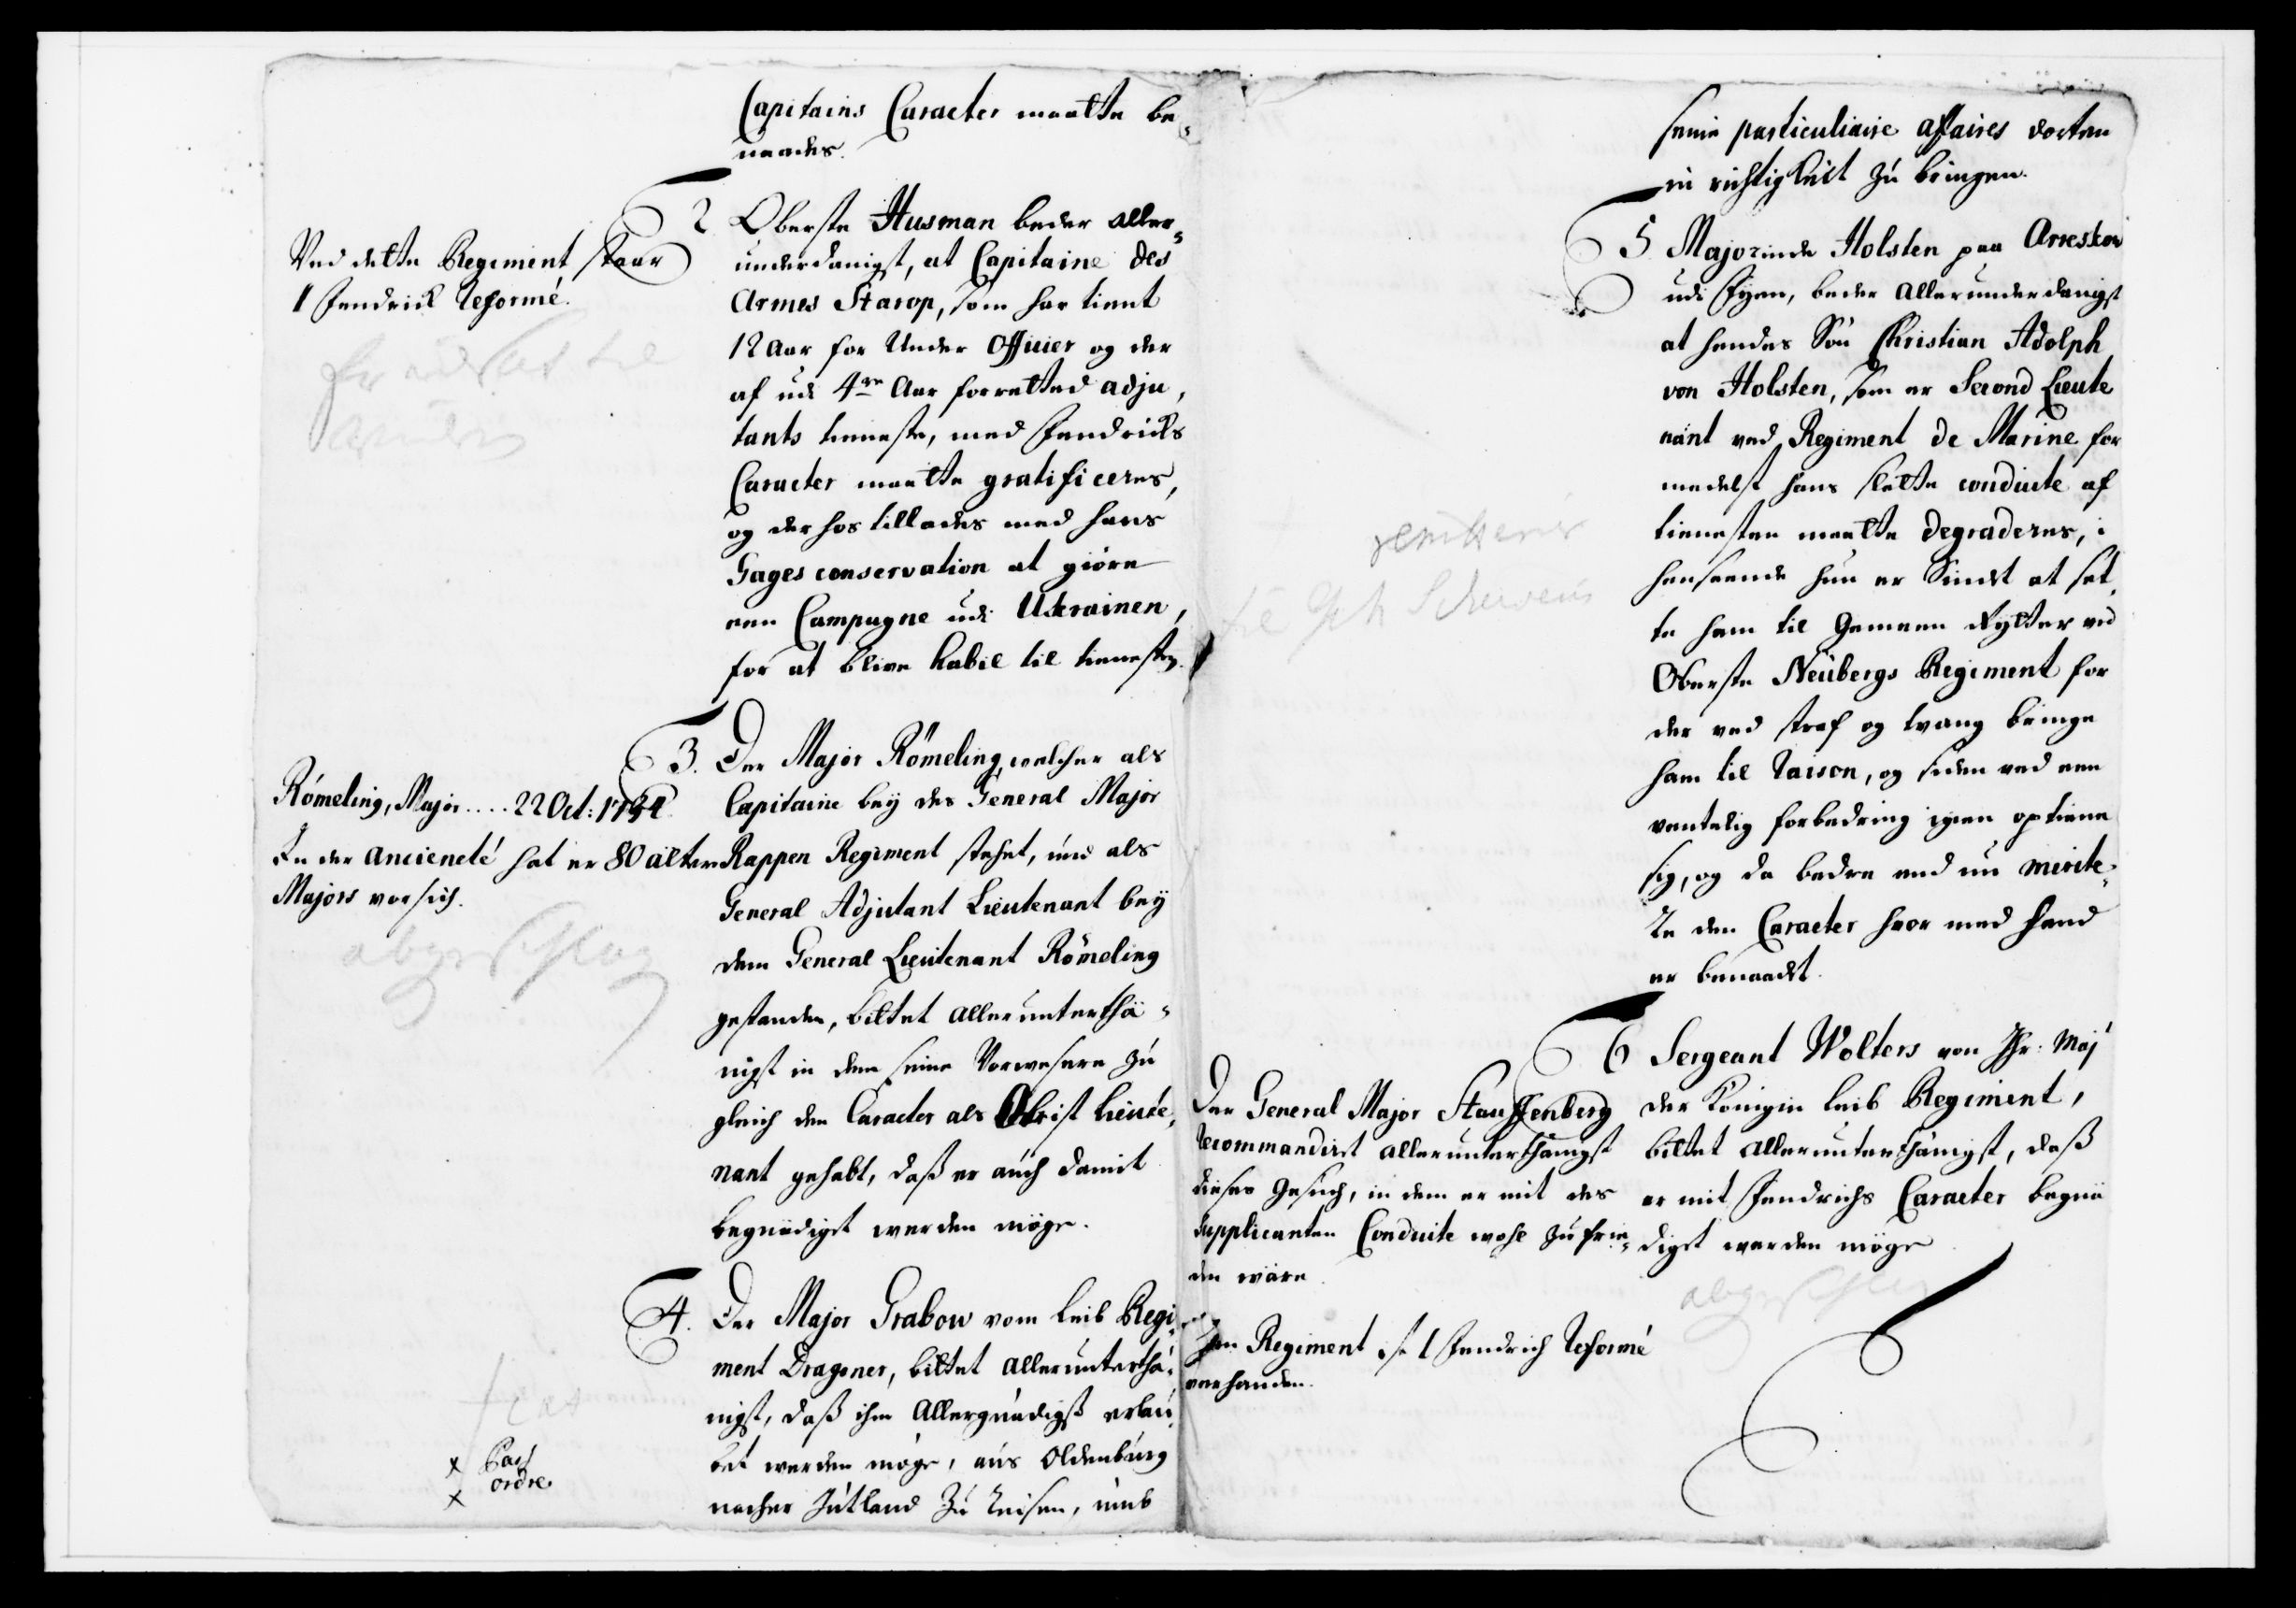 Capitains Caracter maatte be-
naades.
2 Oberste Husman beder aller-
underdanigst, at Capitaine des
Armes Starop, som har tient
12 Aar for Under Officier og der
af udi 4re Aar forretted adju,
tants tieneste, med Fendricks
Caracter maatte gratificeres,
og derhos tillades med hans
Gages conservation at giöre
een Campagne udi Ukrainen,
for at blive habil til tienesten.
Ved dette Regiment staar
1 Fendrick Reformé.
3. Der Major Römeling, welcher als
Capitaine beÿ des General Major
Rappen Regiment stehet, und als
General Adjutant Lieutenant beÿ
dem General Lieutenant Römeling
gestanden, bittet allerunterthä-
nigst in dem seine Vorwesere zu
gleich den Caracter als Obrist Lieute,
nant gehabt, daß er auch damit
begnädiget werden möge.
Römeling, Major .... 22 Oct: 1734.
In der Ancieneté hat er 80 ältere
Majors vor sich.
abgeschlag
4. Der Major Grabow vom Leib Regi-
ment Dragoner, bittet allerunterthä-
nigst, daß ihm Allergnädigst erlau-
bet werden möge, aus Oldenburg
nacher Jütland zu reisen, umb
fiat
x Pass
ordre
x
seine particuliaire affaires dorten
in richtigkeit zu bringen.
5 Majorinde Holsten paa Arreskov
udi Fyen, beder allerunderdanigst
at hendes Sön Christian Adolph
von Holsten, som er Second Lieute
nant ved Regiment de Marine for
medelst hans slette conduite af
tienesten maatte degraderes, i
henseende hun er Sindet at set,
te ham til Gemeen Rytter ved
Oberste Neubergs Regiment for
der ved straf og tvang bringe
ham til Raison, og siden ved een
ventelig forbedring igien optiene
sig, og da bedre end nu merite-
re den Caracter hvor med hand
er benaadet.
til Schewens
6 Sergeant Wolters von Ihr: Maj
der Königin Leib Regiment,
bittet allerunterthänigst, daß
er mit Fendrichs Caracter begnä
diget werden möge
abgeschlag
Der General Major Stauffenberg
Recommandiret allerunterthänigst
dieses Gesuch, in dem er mit des
Supplicanten Conduite wohl zu frie-
den wäre.
Regiment ist 1 Fendrich Reformé
vorhanden.